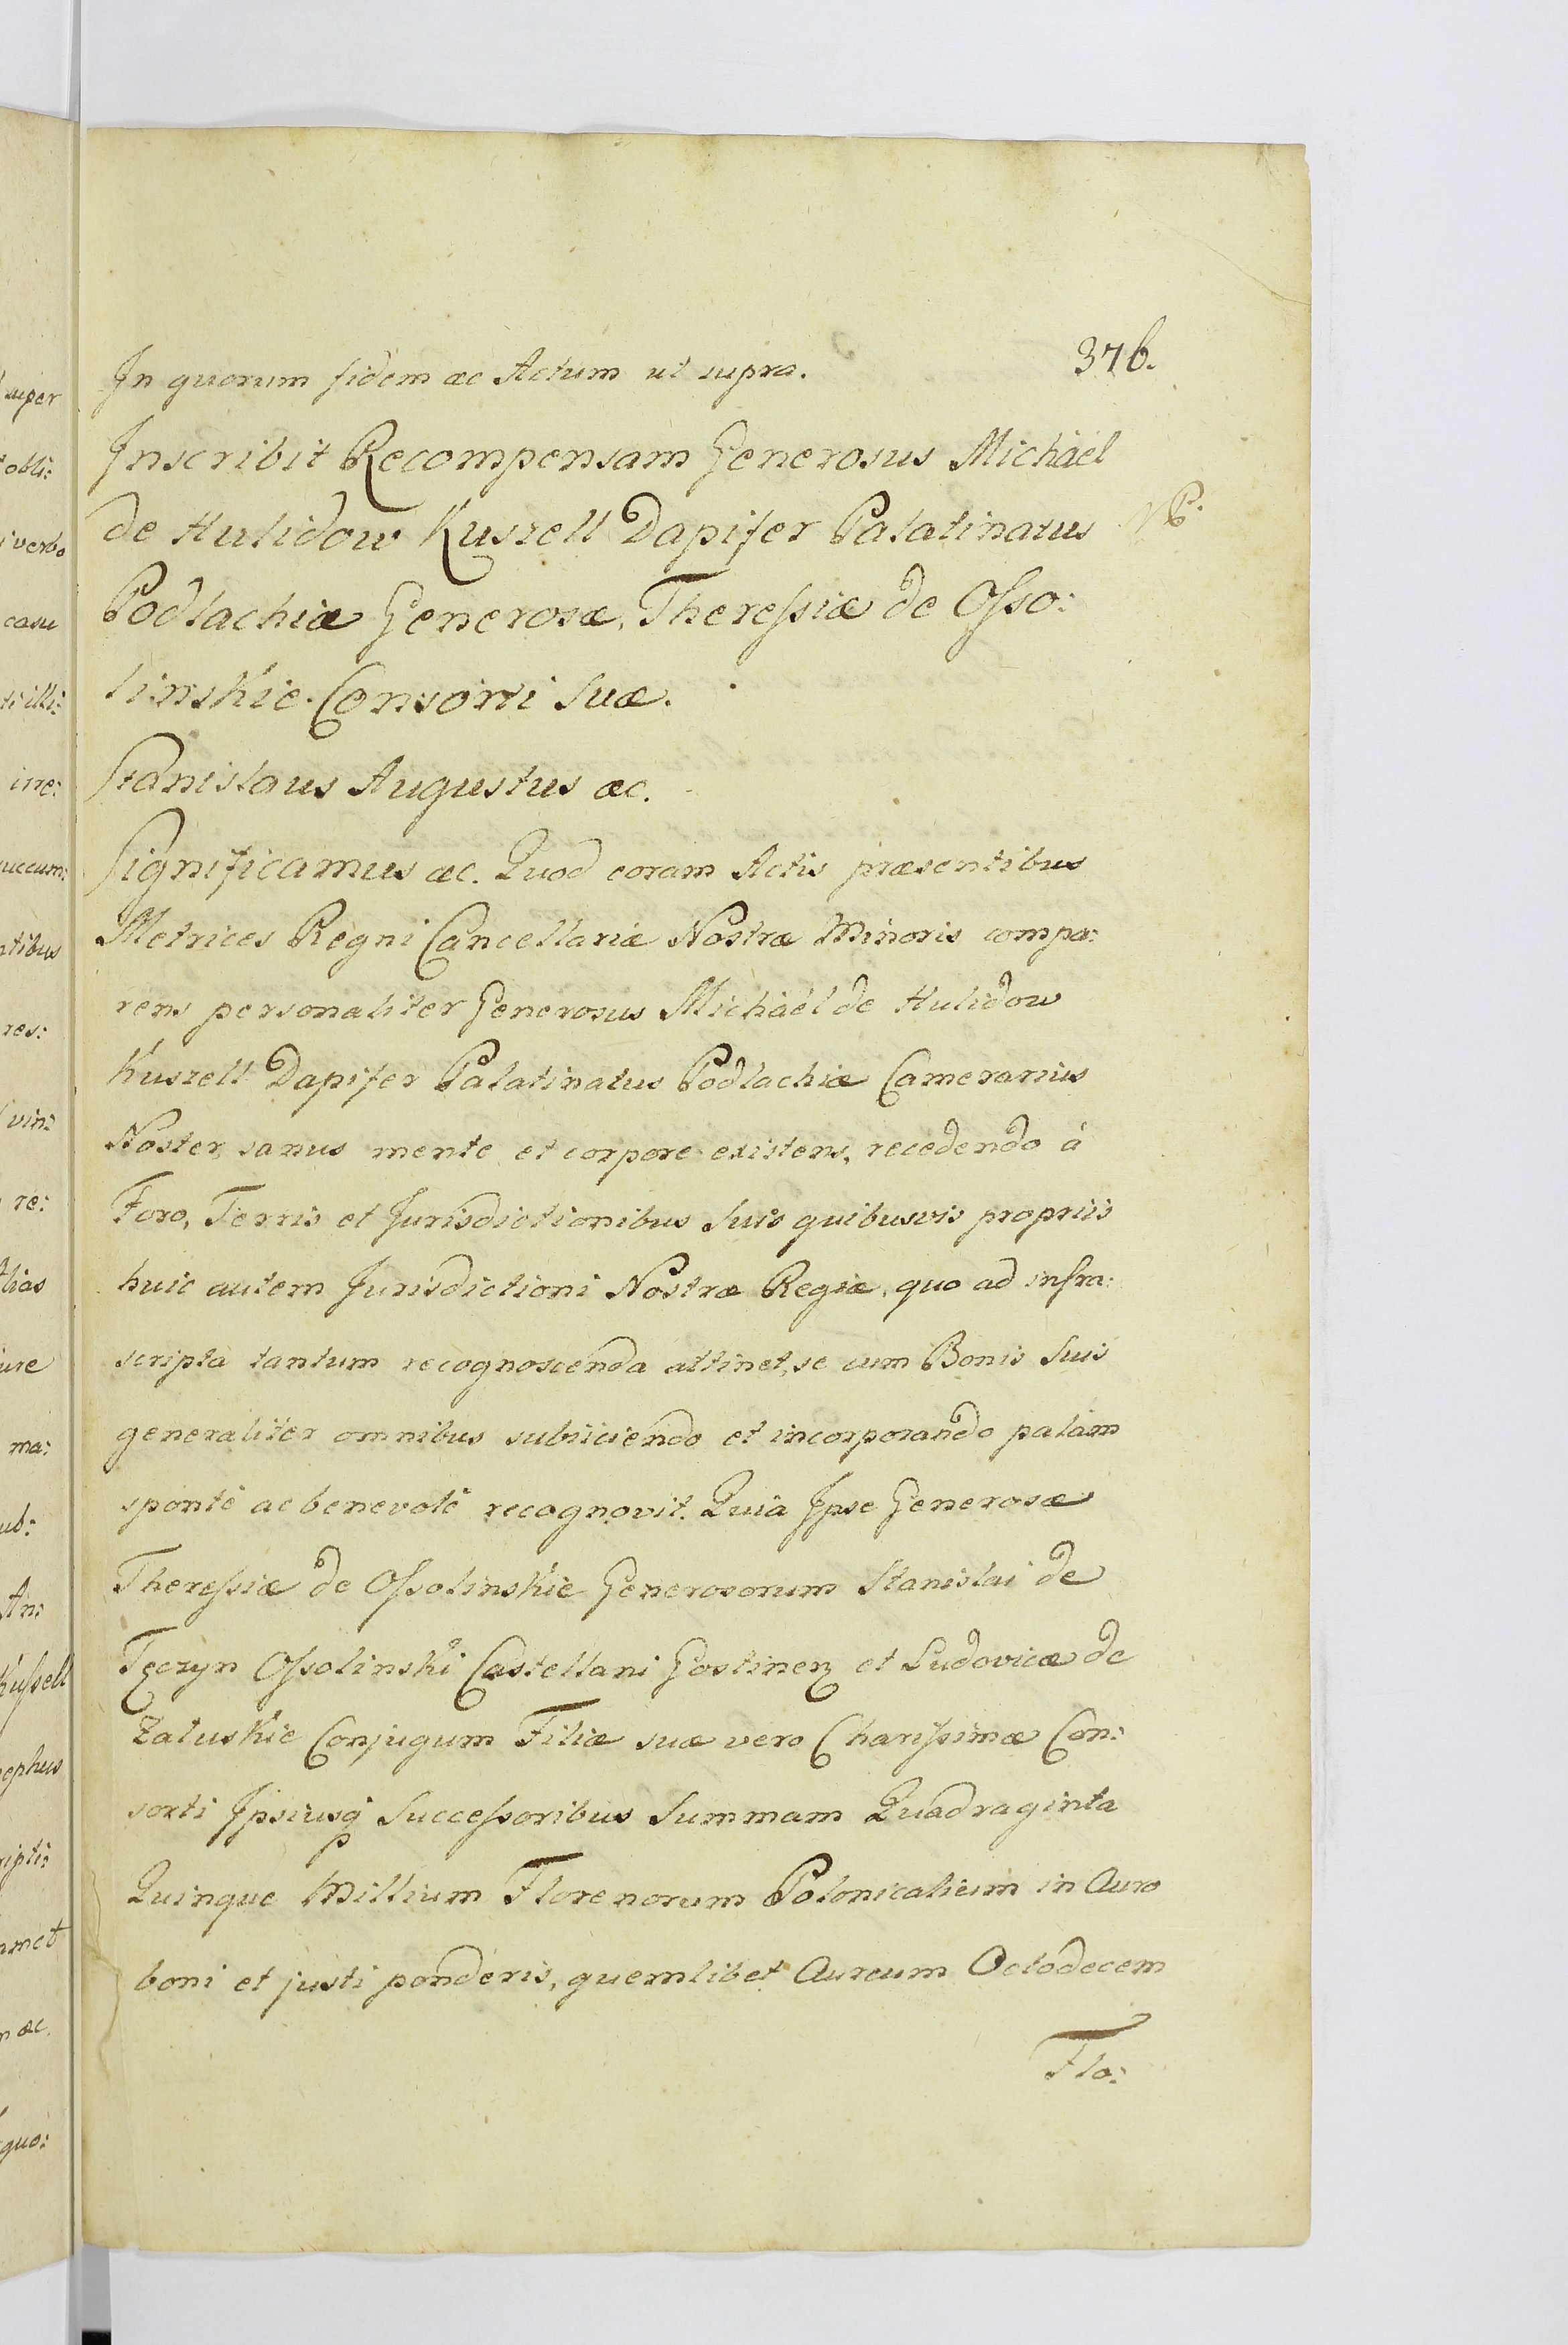 376.
In quorum fidem ac Actum ut supra.
Inscribit Recompensam Generosus Michaël
de Hulidow Kuszell Dapifer Palatinatus
NB.
Podlachiæ Generosæ, Theresſiæ de Oſso:
linskie. Consorti Suæ.
Stanislaus Augustus ac.
Significamus ac. Quod coram Actis præsentibus
Metrices Regni Cancellariæ Nostræ Minoris compa:
rens personaliter Generosus Michaél de Hulidow
Kuszell Dapifer Palatinatus Podlachiæ Camerarius
Noster, sanus mente et corpore existens, recedendo à
Foro, Terris et Jurisdictionibus Suis quibusvis propriis
huic autem Jurisdictioni Nostræ Regiæ, quo ad infra:
scripta tantum recognoscenda attinet, se cum Bonis Suis
generaliter omnibus subiiciendo et incorporando palàm
spontè ac benevolè recognovit. Quia Ipse Generosæ
Thereſsiæ de Oſsolinskie Generosorum Stanislai de
Tęczyn Oſsolinski Castellani Gostinen et Ludovicæ de
Załuskie Conjugum Filiæ suæ vero Chariſsimæ Con:
sorti Ipsiusq Succeſsoribus Summam Quadraginta
Quinque Millium Florenorum Polonicalium in Auro
boni et justi ponderis, quemlibet Aureum Octodecem
Flo: